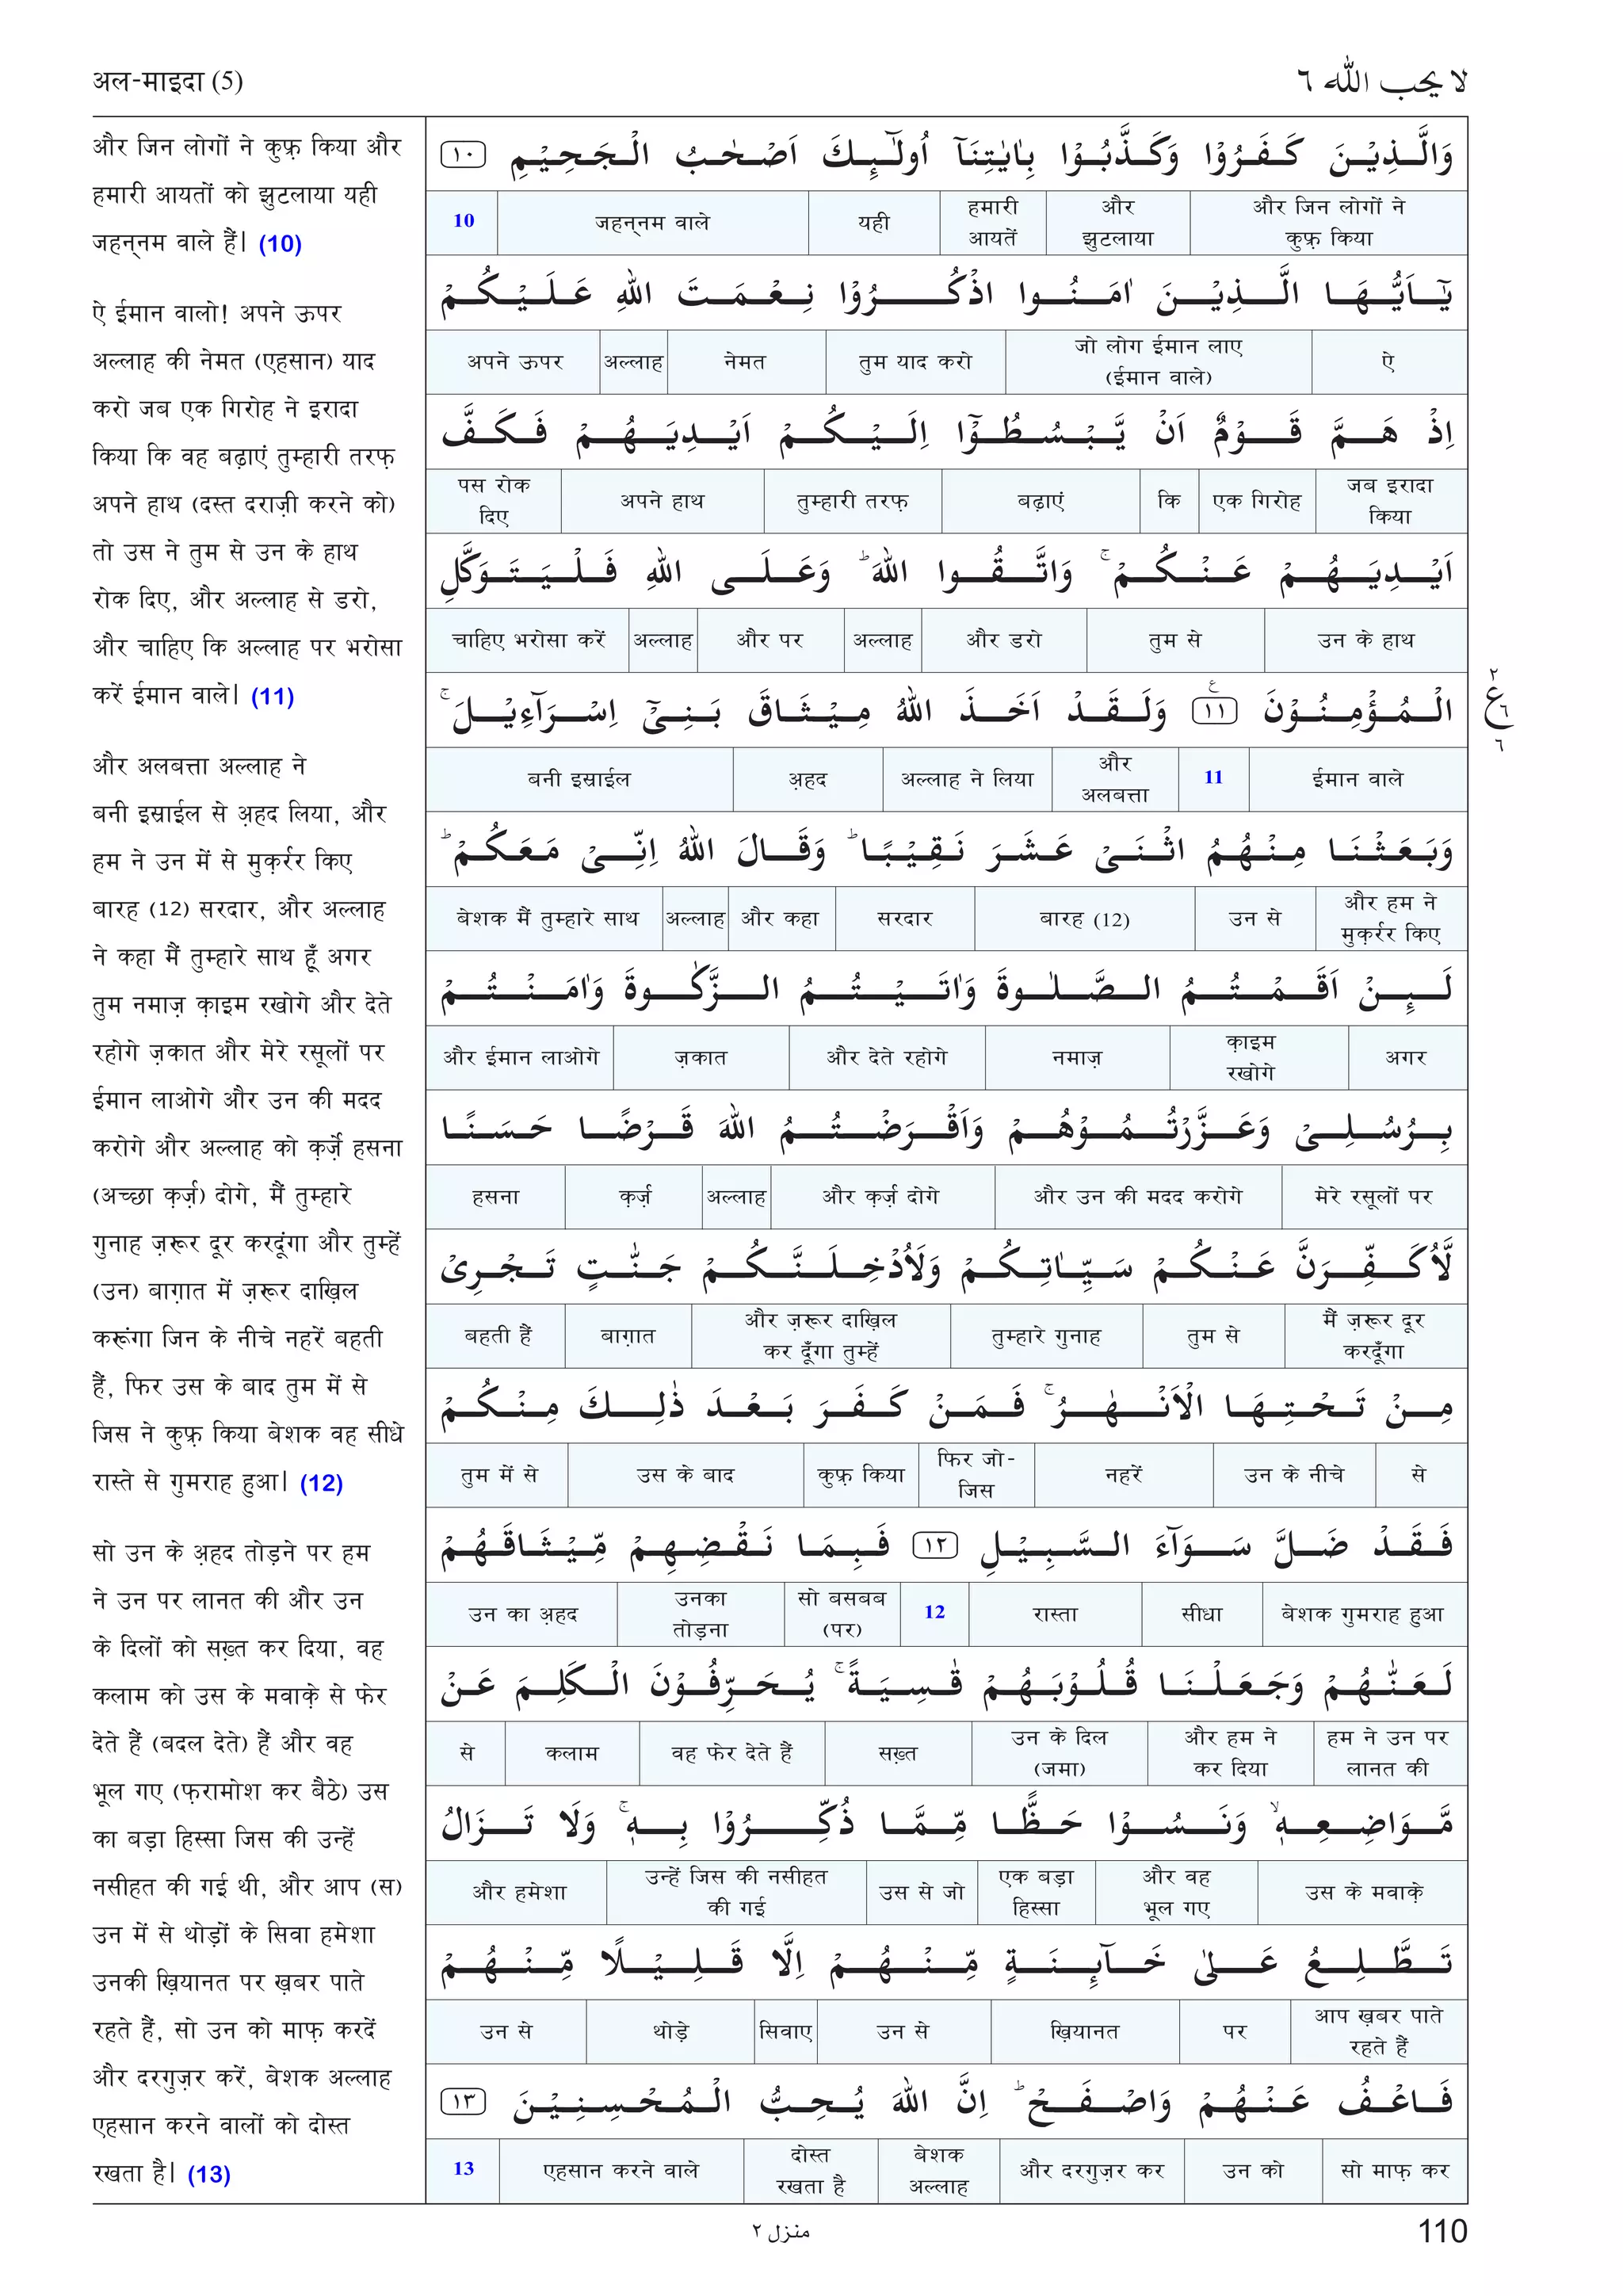 अल-माइदा (5)
لا يحب الله ٦
और जिन लोगों ने कुफ़्र किया और
हमारी आयतों को झुटलाया यही
जहन्नम वाले हैं। (10)
ऐ ईमान वालो! अपने ऊपर
अल्लाह की नेमत (एहसान) याद
करो जब एक गिरोह ने इरादा
किया कि वह बढ़ाएं तुम्हारी तरफ़
अपने हाथ (दस्त दराज़ी करने को)
तो उस ने तुम से उन के हाथ
रोक दिए, और अल्लाह से डरो,
और चाहिए कि अल्लाह पर भरोसा
करें ईमान वाले। (11)
और अलबत्ता अल्लाह ने
बनी इस्राईल से अ़हद लिया, और
हम ने उन में से मुक़र्रर किए
बारह (12) सरदार, और अल्लाह
ने कहा मैं तुम्हारे साथ हूँ अगर
तुम नमाज़ क़ाइम रखोगे और देते
रहोगे ज़कात और मेरे रसूलों पर
ईमान लाओगे और उन की मदद
करोगे और अल्लाह को क़र्ज़े हसना
(अच्छा क़र्ज़) दोगे, मैं तुम्हारे
गुनाह ज़रूर दूर करदूंगा और तुम्हें
(उन) बाग़ात में ज़रूर दाख़िल
करूंगा जिन के नीचे नहरें बहती
हैं, फिर उस के बाद तुम में से
जिस ने कुफ़्र किया बेशक वह सीधे
रास्ते से गुमराह हुआ। (12)
सो उन के अ़हद तोड़ने पर हम
ने उन पर लानत की और उन
के दिलों को सख़्त कर दिया, वह
कलाम को उस के मवाक़े से फेर
देते हैं (बदल देते) हैं और वह
भूल गए (फ़रामोश कर बैठे) उस
का बड़ा हिस्सा जिस की उन्हें
नसीहत की गई थी, और आप (स)
उन में से थोड़ों के सिवा हमेशा
उनकी ख़ियानत पर ख़बर पाते
रहते हैं, सो उन को माफ़ करदें
और दरगुज़र करें, बेशक अल्लाह
एहसान करने वालों को दोस्त
रखता है। (13)
وَالَّذِيْنَ كَفَرُوْا وَكَذَّبُوْا بِاٰيٰتِنَآ اُولٰٓئِكَ اَصْحٰبُ الْجَحِيْمِ ١٠
और जिन लोगों ने कुफ़्र किया | और झुटलाया | हमारी आयतें | यही | जहन्नम वाले | 10
يٰٓاَيُّهَا الَّذِيْنَ اٰمَنُوا اذْكُرُوْا نِعْمَتَ اللّٰهِ عَلَيْكُمْ
ऐ | जो लोग ईमान लाए (ईमान वाले) | तुम याद करो | नेमत | अल्लाह | अपने ऊपर
اِذْ هَمَّ قَوْمٌ اَنْ يَّبْسُطُوْٓا اِلَيْكُمْ اَيْدِيَهُمْ فَكَفَّ
जब इरादा किया | एक गिरोह | कि | बढ़ाएं | तुम्हारी तरफ़ | अपने हाथ | पस रोक दिए
اَيْدِيَهُمْ عَنْكُمْ ۚ وَاتَّقُوا اللّٰهَ ؕ وَعَلَى اللّٰهِ فَلْيَتَوَكَّلِ
उन के हाथ | तुम से | और डरो | अल्लाह | और पर | अल्लाह | चाहिए भरोसा करें
الْمُؤْمِنُوْنَ ١١ ع وَلَقَدْ اَخَذَ اللّٰهُ مِيْثَاقَ بَنِيْٓ اِسْرَآءِيْلَ ۚ
٢ ع ٦ ٦
ईमान वाले | 11 | और अलबत्ता | अल्लाह ने लिया | अ़हद | बनी इस्राईल
وَبَعَثْنَا مِنْهُمُ اثْنَيْ عَشَرَ نَقِيْبًا ؕ وَقَالَ اللّٰهُ اِنِّيْ مَعَكُمْ ؕ
और हम ने मुक़र्रर किए | उन से | बारह (12) | सरदार | और कहा | अल्लाह | बेशक मैं तुम्हारे साथ
لَئِنْ اَقَمْتُمُ الصَّلٰوةَ وَاٰتَيْتُمُ الزَّكٰوةَ وَاٰمَنْتُمْ
अगर | क़ाइम रखोगे | नमाज़ | और देते रहोगे | ज़कात | और ईमान लाओगे
بِرُسُلِيْ وَعَزَّرْتُمُوْهُمْ وَاَقْرَضْتُمُ اللّٰهَ قَرْضًا حَسَنًا
मेरे रसूलों पर | और उन की मदद करोगे | और क़र्ज़ दोगे | अल्लाह | क़र्ज़ | हसना
لَّاُكَفِّرَنَّ عَنْكُمْ سَيِّاٰتِكُمْ وَلَاُدْخِلَنَّكُمْ جَنّٰتٍ تَجْرِيْ
मैं ज़रूर दूर करदूँगा | तुम से | तुम्हारे गुनाह | और ज़रूर दाख़िल कर दूँगा तुम्हें | बाग़ात | बहती हैं
مِنْ تَحْتِهَا الْاَنْهٰرُ ۚ فَمَنْ كَفَرَ بَعْدَ ذٰلِكَ مِنْكُمْ
से | उन के नीचे | नहरें | फिर जो-जिस | कुफ़्र किया | उस के बाद | तुम में से
فَقَدْ ضَلَّ سَوَآءَ السَّبِيْلِ ١٢ فَبِمَا نَقْضِهِمْ مِّيْثَاقَهُمْ
बेशक गुमराह हुआ | सीधा | रास्ता | 12 | सो बसबब (पर) | उनका तोड़ना | उन का अ़हद
لَعَنّٰهُمْ وَجَعَلْنَا قُلُوْبَهُمْ قٰسِيَةً ۚ يُحَرِّفُوْنَ الْكَلِمَ عَنْ
हम ने उन पर लानत की | और हम ने कर दिया | उन के दिल (जमा) | सख़्त | वह फेर देते हैं | कलाम | से
مَّوَاضِعِهٖ ۙ وَنَسُوْا حَظًّا مِّمَّا ذُكِّرُوْا بِهٖ ۚ وَلَا تَزَالُ
उस के मवाक़े | और वह भूल गए | एक बड़ा हिस्सा | उस से जो | उन्हें जिस की नसीहत की गई | और हमेशा
تَطَّلِعُ عَلٰى خَآئِنَةٍ مِّنْهُمْ اِلَّا قَلِيْلًا مِّنْهُمْ
आप ख़बर पाते रहते हैं | पर | ख़ियानत | उन से | सिवाए | थोड़े | उन से
فَاعْفُ عَنْهُمْ وَاصْفَحْ ؕ اِنَّ اللّٰهَ يُحِبُّ الْمُحْسِنِيْنَ ١٣
सो माफ़ कर | उन को | और दरगुज़र कर | बेशक अल्लाह | दोस्त रखता है | एहसान करने वाले | 13
منزل ٢
110